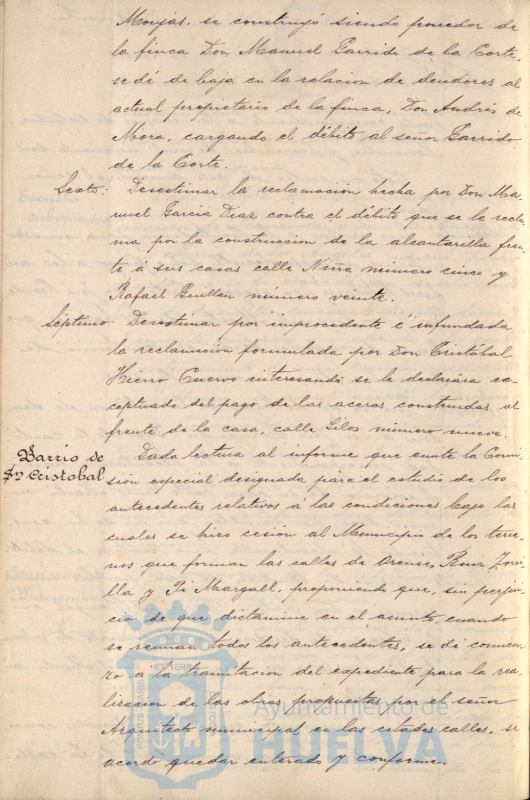 Monjas, se construyó siendo poseedor de
la finca Don Manuel Garrido de la Corte,
se dé de baja en la relacion de deudores al
actual propietario de la finca, Don Andrés de
Mora, cargando el débito al señor Garrido
de la Corte.
Sexto: Desestimar la reclamación hecha por Don Ma-
nuel García Diaz contra el débito que se le recla-
ma por la construccion de la alcantarilla fren-
te á sus casas calle Niña número cinco y
Rafael Guillen número veinte.
Séptimo: Desestimar por improcedente é infundada
la reclamación formulada por Don Cristóbal
Hierro Cuervo interesando se le declarára ex-
ceptuado del pago de las aceras construidas al
frente de la casa, calle Silos número nueve.
Barrio de
Sn Cristobal
Dada lectura al informe que emite la Comi-
sión especial designada para el estudio de los
antecedentes relativos á las condiciones bajo las
cuales se hizo cesión al Municipio de los terre-
nos que forman las calles de Orense, Ruiz Zorri-
lla y Pi Margall, proponiendo que, sin perjui-
cio de que dictamine en el asunto, cuando
se reunan todos los antecedentes, se dé comien-
zo á la tramitacion del expediente para la rea-
lizacion de las obras propuestas por el señor
Arquitecto municipal en las citadas calles, se
acordó quedar enterado y conforme.
Ayuntamiento de
HUELVA